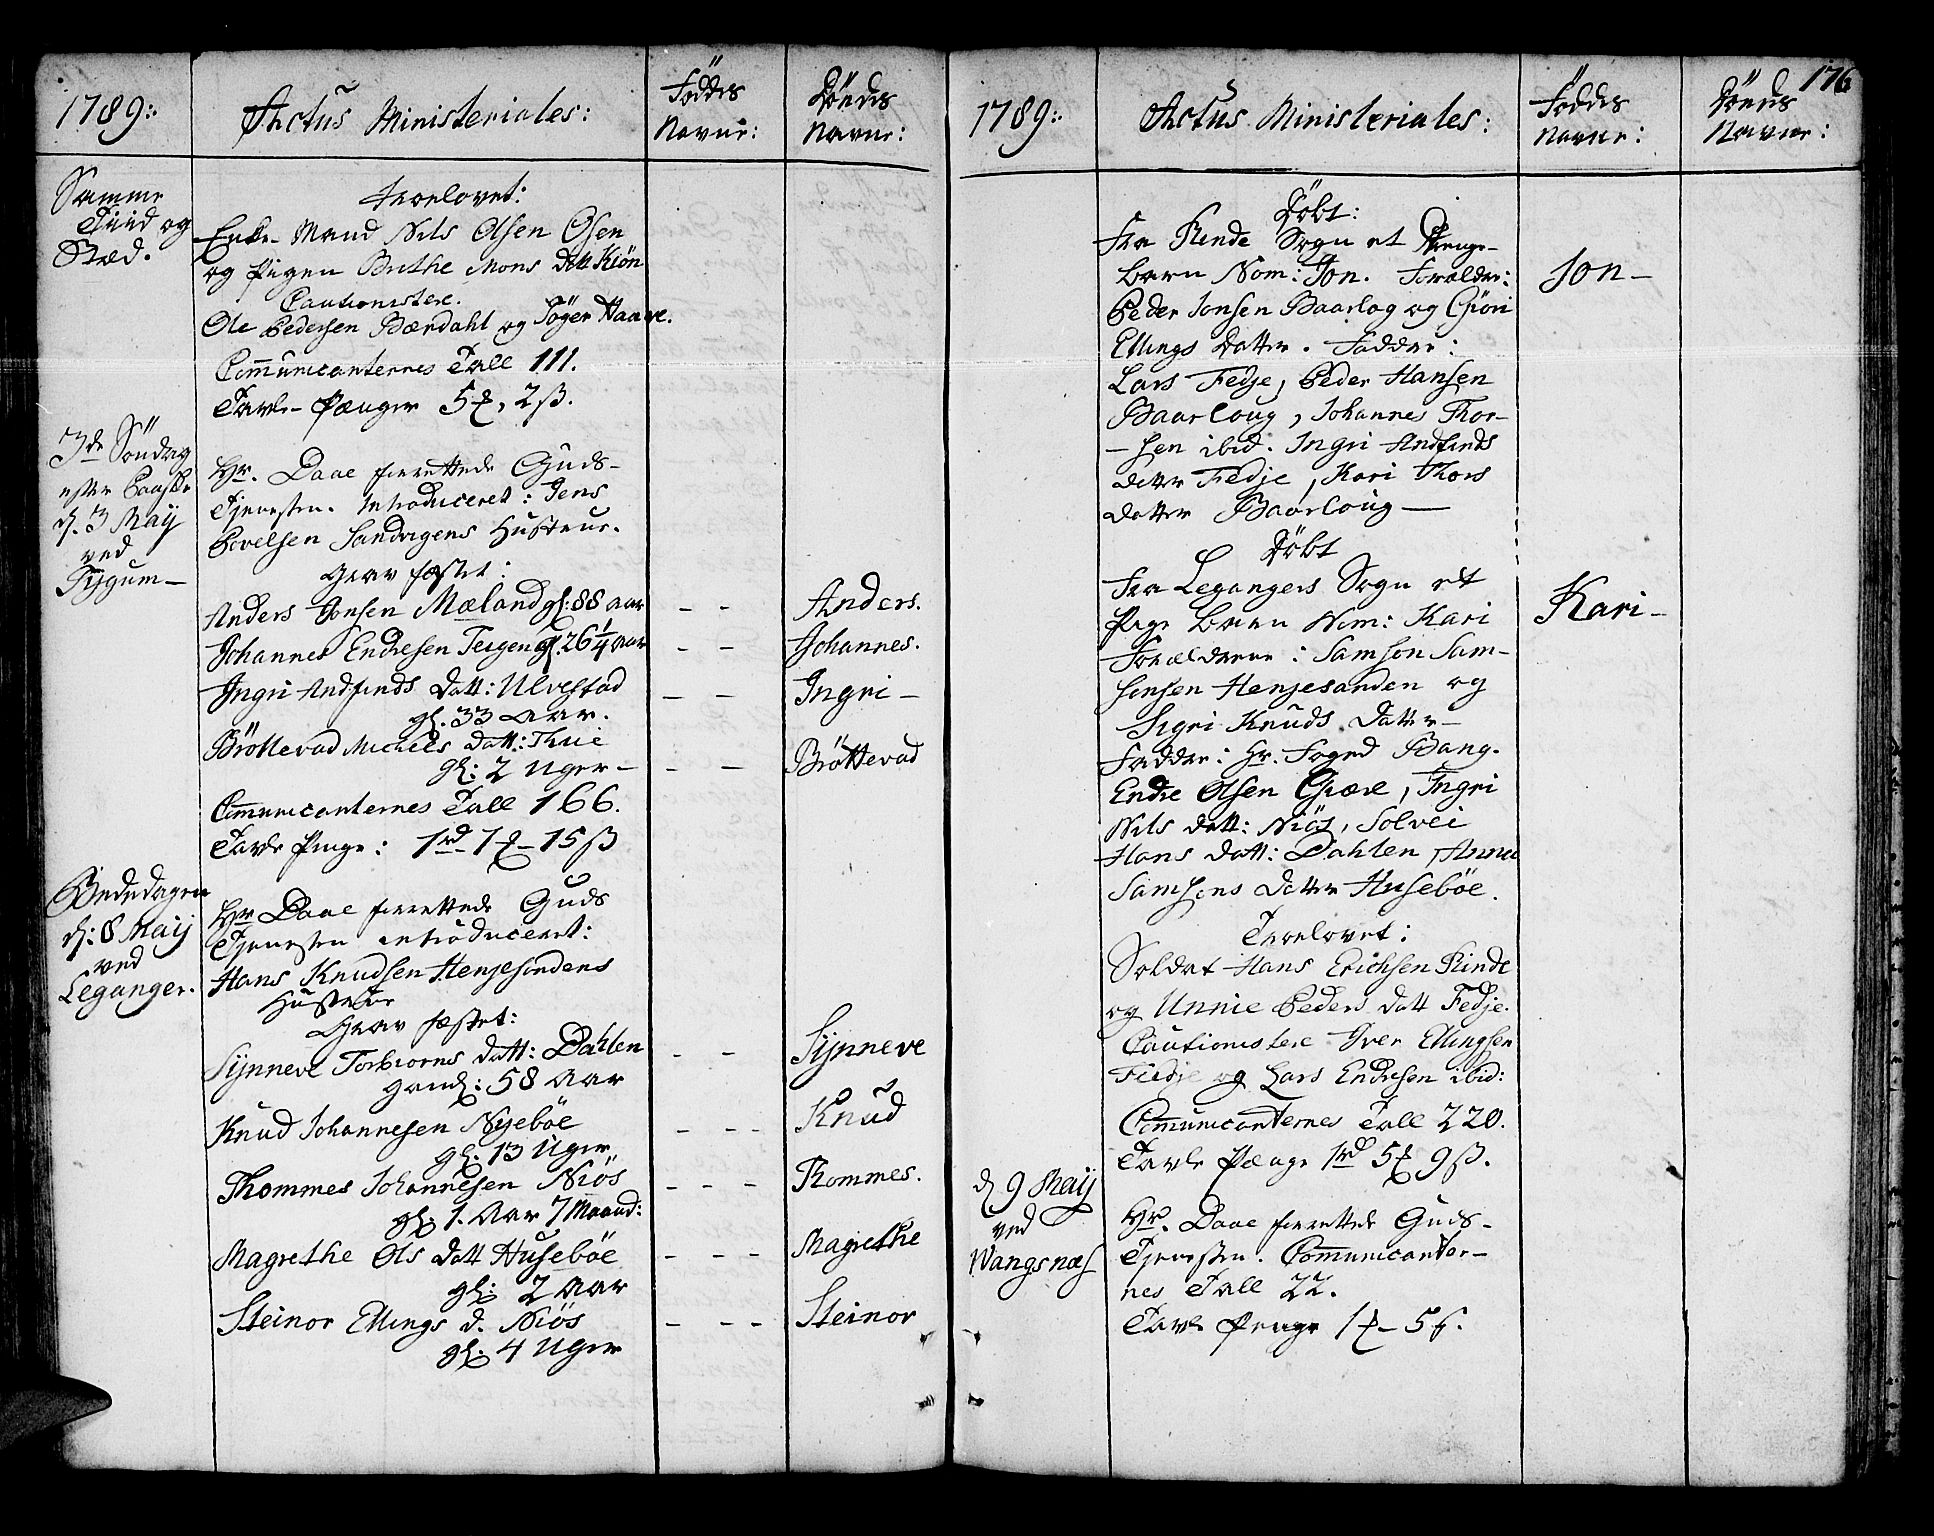 1789:
Actus Ministeriales:
Föddes
Navne:
Döedes
Navne:
Samme
Tiid og
Stæd.
Troelovet:
Enke-Mand Nils Olsen Osen
og Pigen Brithe Mons Datt Kiön
Cautionistere.
Ole Pedersen Bærdahl og Siöger Haave.
Communicanternes Tall 111.
Tavle-Penger 5 ꝉ, 2 ß.
3de Söndag
efter Paaske
d. 3 Maij
ved
Tygum-
Hr. Daae forrettede Guds-
Tjenesten. Introduceret: Jens
Povelsen Sandvigens Hustrue.
Grav fæstet:
Anders Jonsen Mæland gl: 88 Aar
- - Anders.
Johannes Endresen Teigen gl. 26 1/4 Aar
- - Johannes.
Ingri Andfinds Datt: Ulvestad
gl. 33 Aar.
- - Ingri -
Bröttevad Michels Datt: Thue
gl: 2 Uger-
- - Bröttevad
Communicanternes Tall 166.
Tavle Penge: 1 rd 1 ꝉ - 15 ß
Bededagen
d: 8 Maij
ved
Leganger.
Hr Daae forrettede Guds
Tjenesten introduceret:
Hans Knudsen Henjesandens
Hustrue
Grav fæstet:
Synneve Torbiorns Datt: Dahlen
gaml: 58 Aar
- - Synneve
Knud Johannesen Nyeböe
gl. 13 Uger
- - - Knud
Thommes Johannesen Niös
gl: 1. Aar 7 Maaned:
- - - Thommes.
Magrethe Ols Datt Huseböe
gl: 2 Aar
- - - Magrethe
Steinor Ellings d. Niös
gl: 4 Uger
- - - Steinor
176
1789:
Actus Ministeriales:
Föddes
Navne:
Döeds
Navne:
Döbt:
Fra Rinde Sogn et Drenge-
barn Nom: Jon. Forældre:
Jon-
Peder Jonsen Baarlog og Giöri
Ellings Datter. Faddere:
Lars Fedje, Peder Hansen
Baarloug, Johannes Thor-
-sen ibid. Ingri Andfinds
datter Fedje, Kari Thors
datter Baarloug-
Döbt
Fra Legangers Sogn et
Pige Barn Nom: Kari
Kari-
Forældrene: Samson Sam-
sonsen Henjesanden og
Sigri Knuds Datter-
Faddere: Hr. Foged Bang.
Endre Olsen Græe, Ingri
Nils datt: Niös, Solvei
Hans datt: Dahlen, Anna
Samsons Datter Huseböe.
Troelovet:
Soldat Hans Erichsen Rinde
og Unnie Peders Datt Fedje.
Cautionistere Iver Ellingsen
Fedje og Lars Endresen ibid:
Communicanternes Tall 220.
Tavle Penge 1 rd 5 ꝉ 9 ß.
d 9 Maij
ved
Wangsnæs
Hr. Daae forrettede Guds-
Tjenesten. Communicanter-
nes Tall 22.
Tavle Penge 1 ꝉ - 5 ß.